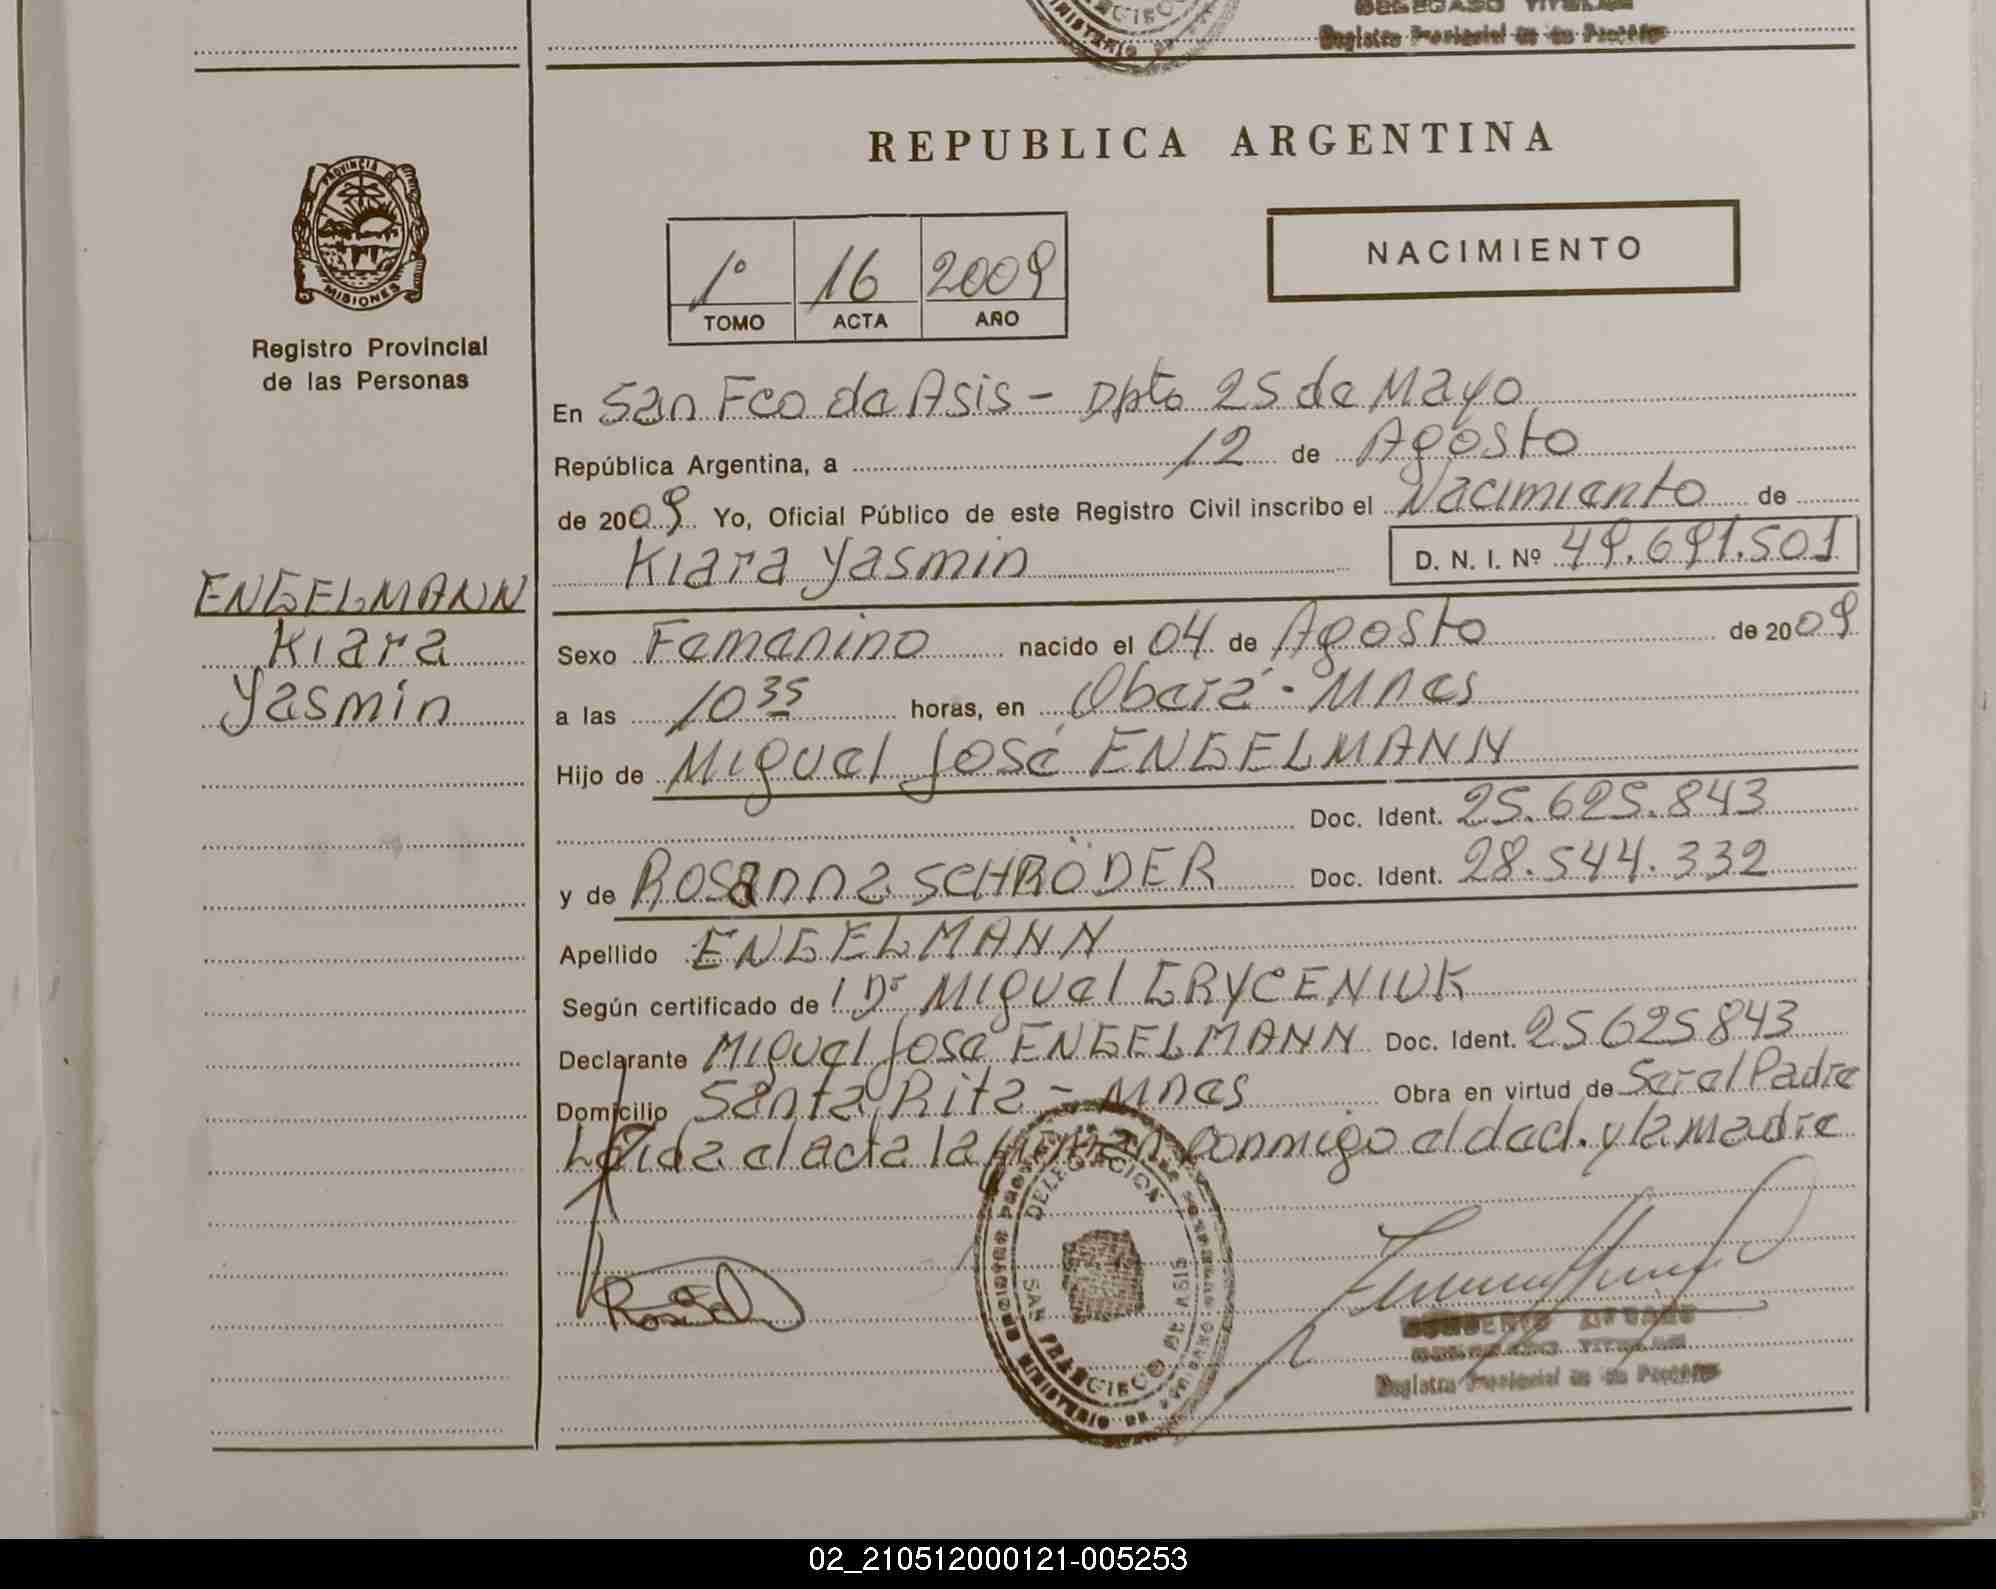 DELEGADO TITULAR
Registro Provincial de las Personas
PROVINCIA DE
MISIONES
Registro Provincial
de las Personas
REPUBLICA ARGENTINA
1º 16 2009
TOMO ACTA AÑO
NACIMIENTO
En San Fco de Asis - Dpto 25 de Mayo
República Argentina, a 12 de Agosto
de 2009 Yo, Oficial Público de este Registro Civil inscribo el Nacimiento de
Kiara Yasmin D. N. I. Nº 49.691.501
ENGELMANN
Kiara
Yasmin
Sexo Femenino nacido el 04 de Agosto de 2009
a las 10 35 horas, en Oberá - Mnes
Hijo de Miguel José ENGELMANN
Doc. Ident. 25.625.843
y de Rosanna SCHRÖDER Doc. Ident. 28.544.332
Apellido ENGELMANN
Según certificado de Dr Miguel GRYCENIUK
Declarante Miguel José ENGELMANN Doc. Ident. 25625843
Domicilio Santa Rita - Mnes Obra en virtud de Ser el Padre
Leída el acta la firman conmigo el decl. y la madre
DELEGACION
SAN FRANCISCO DE ASIS
MINISTERIO DE GOBIERNO
DELEGADO TITULAR
Registro Provincial de las Personas
02_210512000121-005253